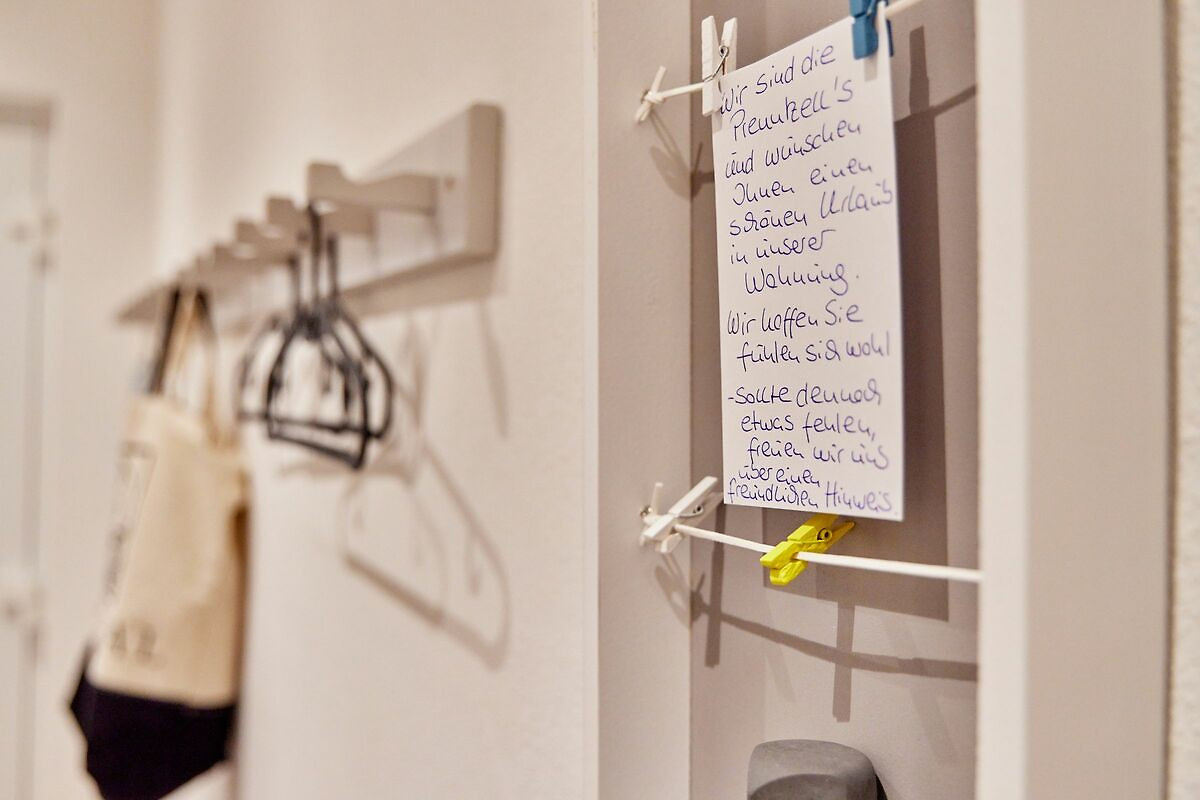 Wir sind die
Prenntzell's
und wünschen
Ihnen einen
schönen Urlaub
in unserer
Wohnung.
Wir hoffen Sie
fühlen sich wohl
-sollte dennoch
etwas fehlen,
freuen wir uns
über einen
freundlichen Hinweis.